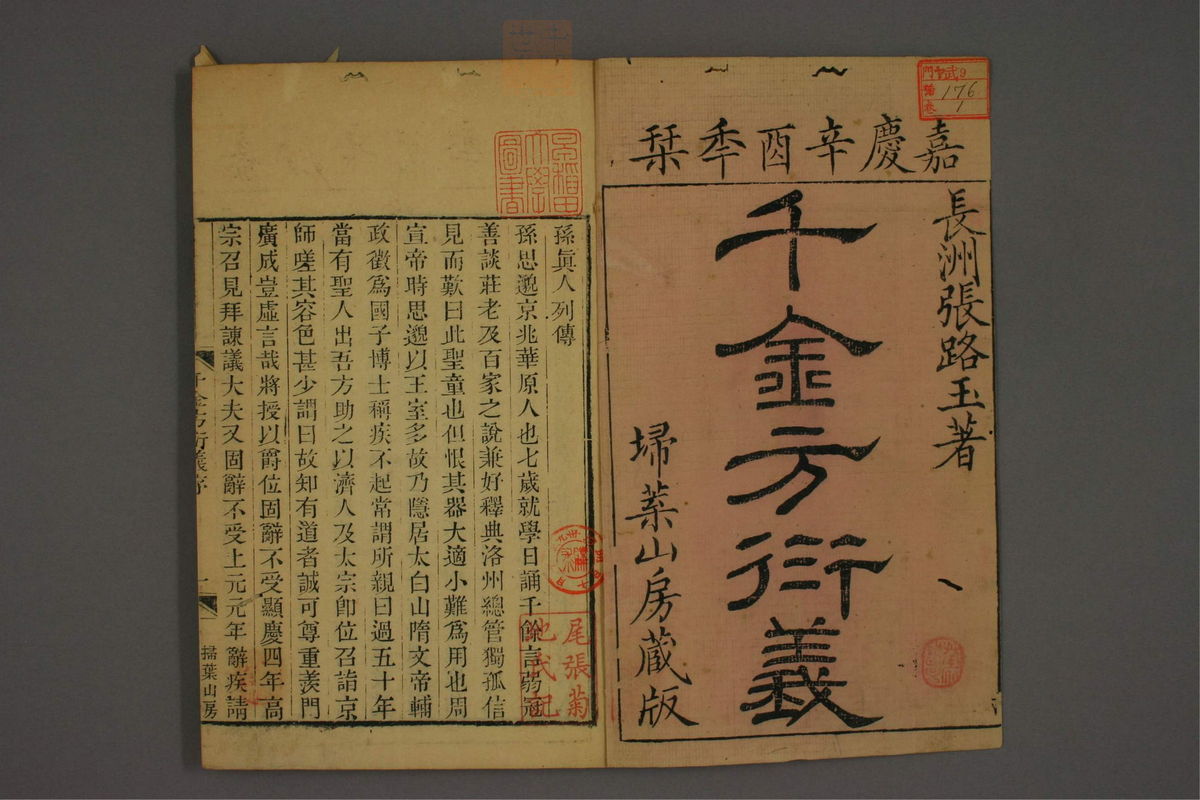 嘉慶辛酉季栞
長洲張路玉著
千金方衍義
埽葉山房蔵版
176
1
孫眞人列傳
孫思邈京兆華原人也七歲就學日誦千餘言弱冠
善談莊老及百家之說兼好釋典洛州總管獨孤信
見而歎曰此聖童也但恨其器大適小難爲用也周
宣帝時思邈以王室多故乃隱居太白山隋文帝輔
政徵爲國子博士稱疾不起常謂所親曰過五十年
當有聖人出吾方助之以濟人及太宗卽位召詣京
師嗟其容色甚少謂曰故知有道者誠可尊重羨門
廣成豈虛言哉將授以爵位固辭不受顯慶四年高
宗召見拜諫議大夫又固辭不受上元元年辭疾請
千金方衍義序
一
掃葉山房
早稲田
大學
圖書
尾張菊
池氏記